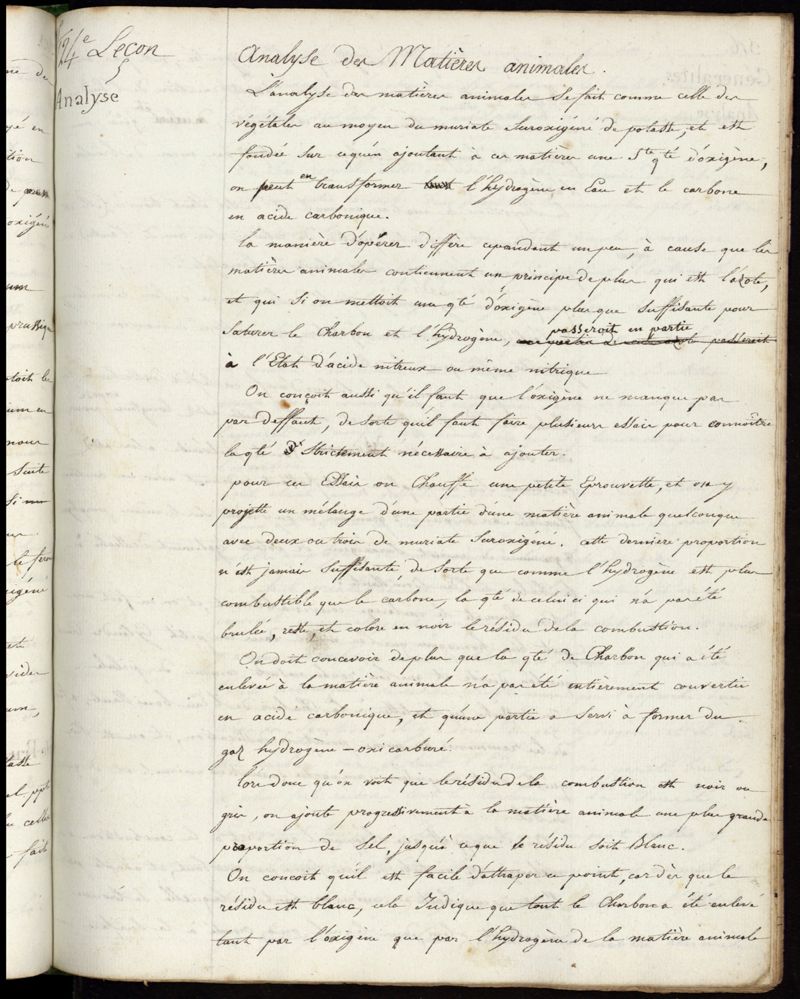 24e Leçon
§
Analyse
Analyse des Matières animales.
L'analyse des matières animales se fait comme celle des
végétales au moyen du muriate suroxigéné de potasse, et est
fondée sur ce qu'en ajoutant à ces matières une Ste qté d'oxigène,
on peut en transformer tout l'hydrogène en Eau et le carbone
en acide carbonique.
La manière d'opérer diffère cependant un peu, à cause que les
matières animales contiennent un principe de plus qui est l'azote,
et qui si on mettoit une qté d'oxigène plus que suffisante pour
saturer le Charbon et l'hydrogène, une partie de cet azote passeroit
passeroit en partie
à l'Etat d'acide nitreux ou même nitrique
On conçoit aussi qu'il faut que l'oxigène ne manque pas
par deffaut, de sorte qu'il faut faire plusieurs essais pour connoître
la qté strictement nécessaire à ajouter.
pour un Essai on Chauffe une petite Eprouvette, et on y
projette un mélange d'une partie d'une matière animale quelconque
avec deux ou trois de muriate suroxigéné. cette dernière proportion
n'est jamais suffisante, de sorte que comme l'hydrogène est plus
combustible que le carbone, la qté de celui ci qui n'a pas été
brulée, reste, et colore en noir le résidu de la combustion.
On doit concevoir de plus que la qté de Charbon qui a été
enlevée à la matière animale n'a pas été entièrement convertie
en acide carbonique, et qu'une partie a servi à former du
gaz hydrogène-oxicarburé.
lors donc qu'on voit que le résidu de la combustion est noir ou
gris, on ajoute progressivement à la matière animale une plus grande
proportion de Sel, jusqu'à ce que le résidu soit Blanc.
On conçoit qu'il est facile d'attraper ce point, car dès que le
résidu est blanc, cela Indique que tout le Charbon a été enlevé
tant par l'oxigène que par l'hydrogène de la matière animale